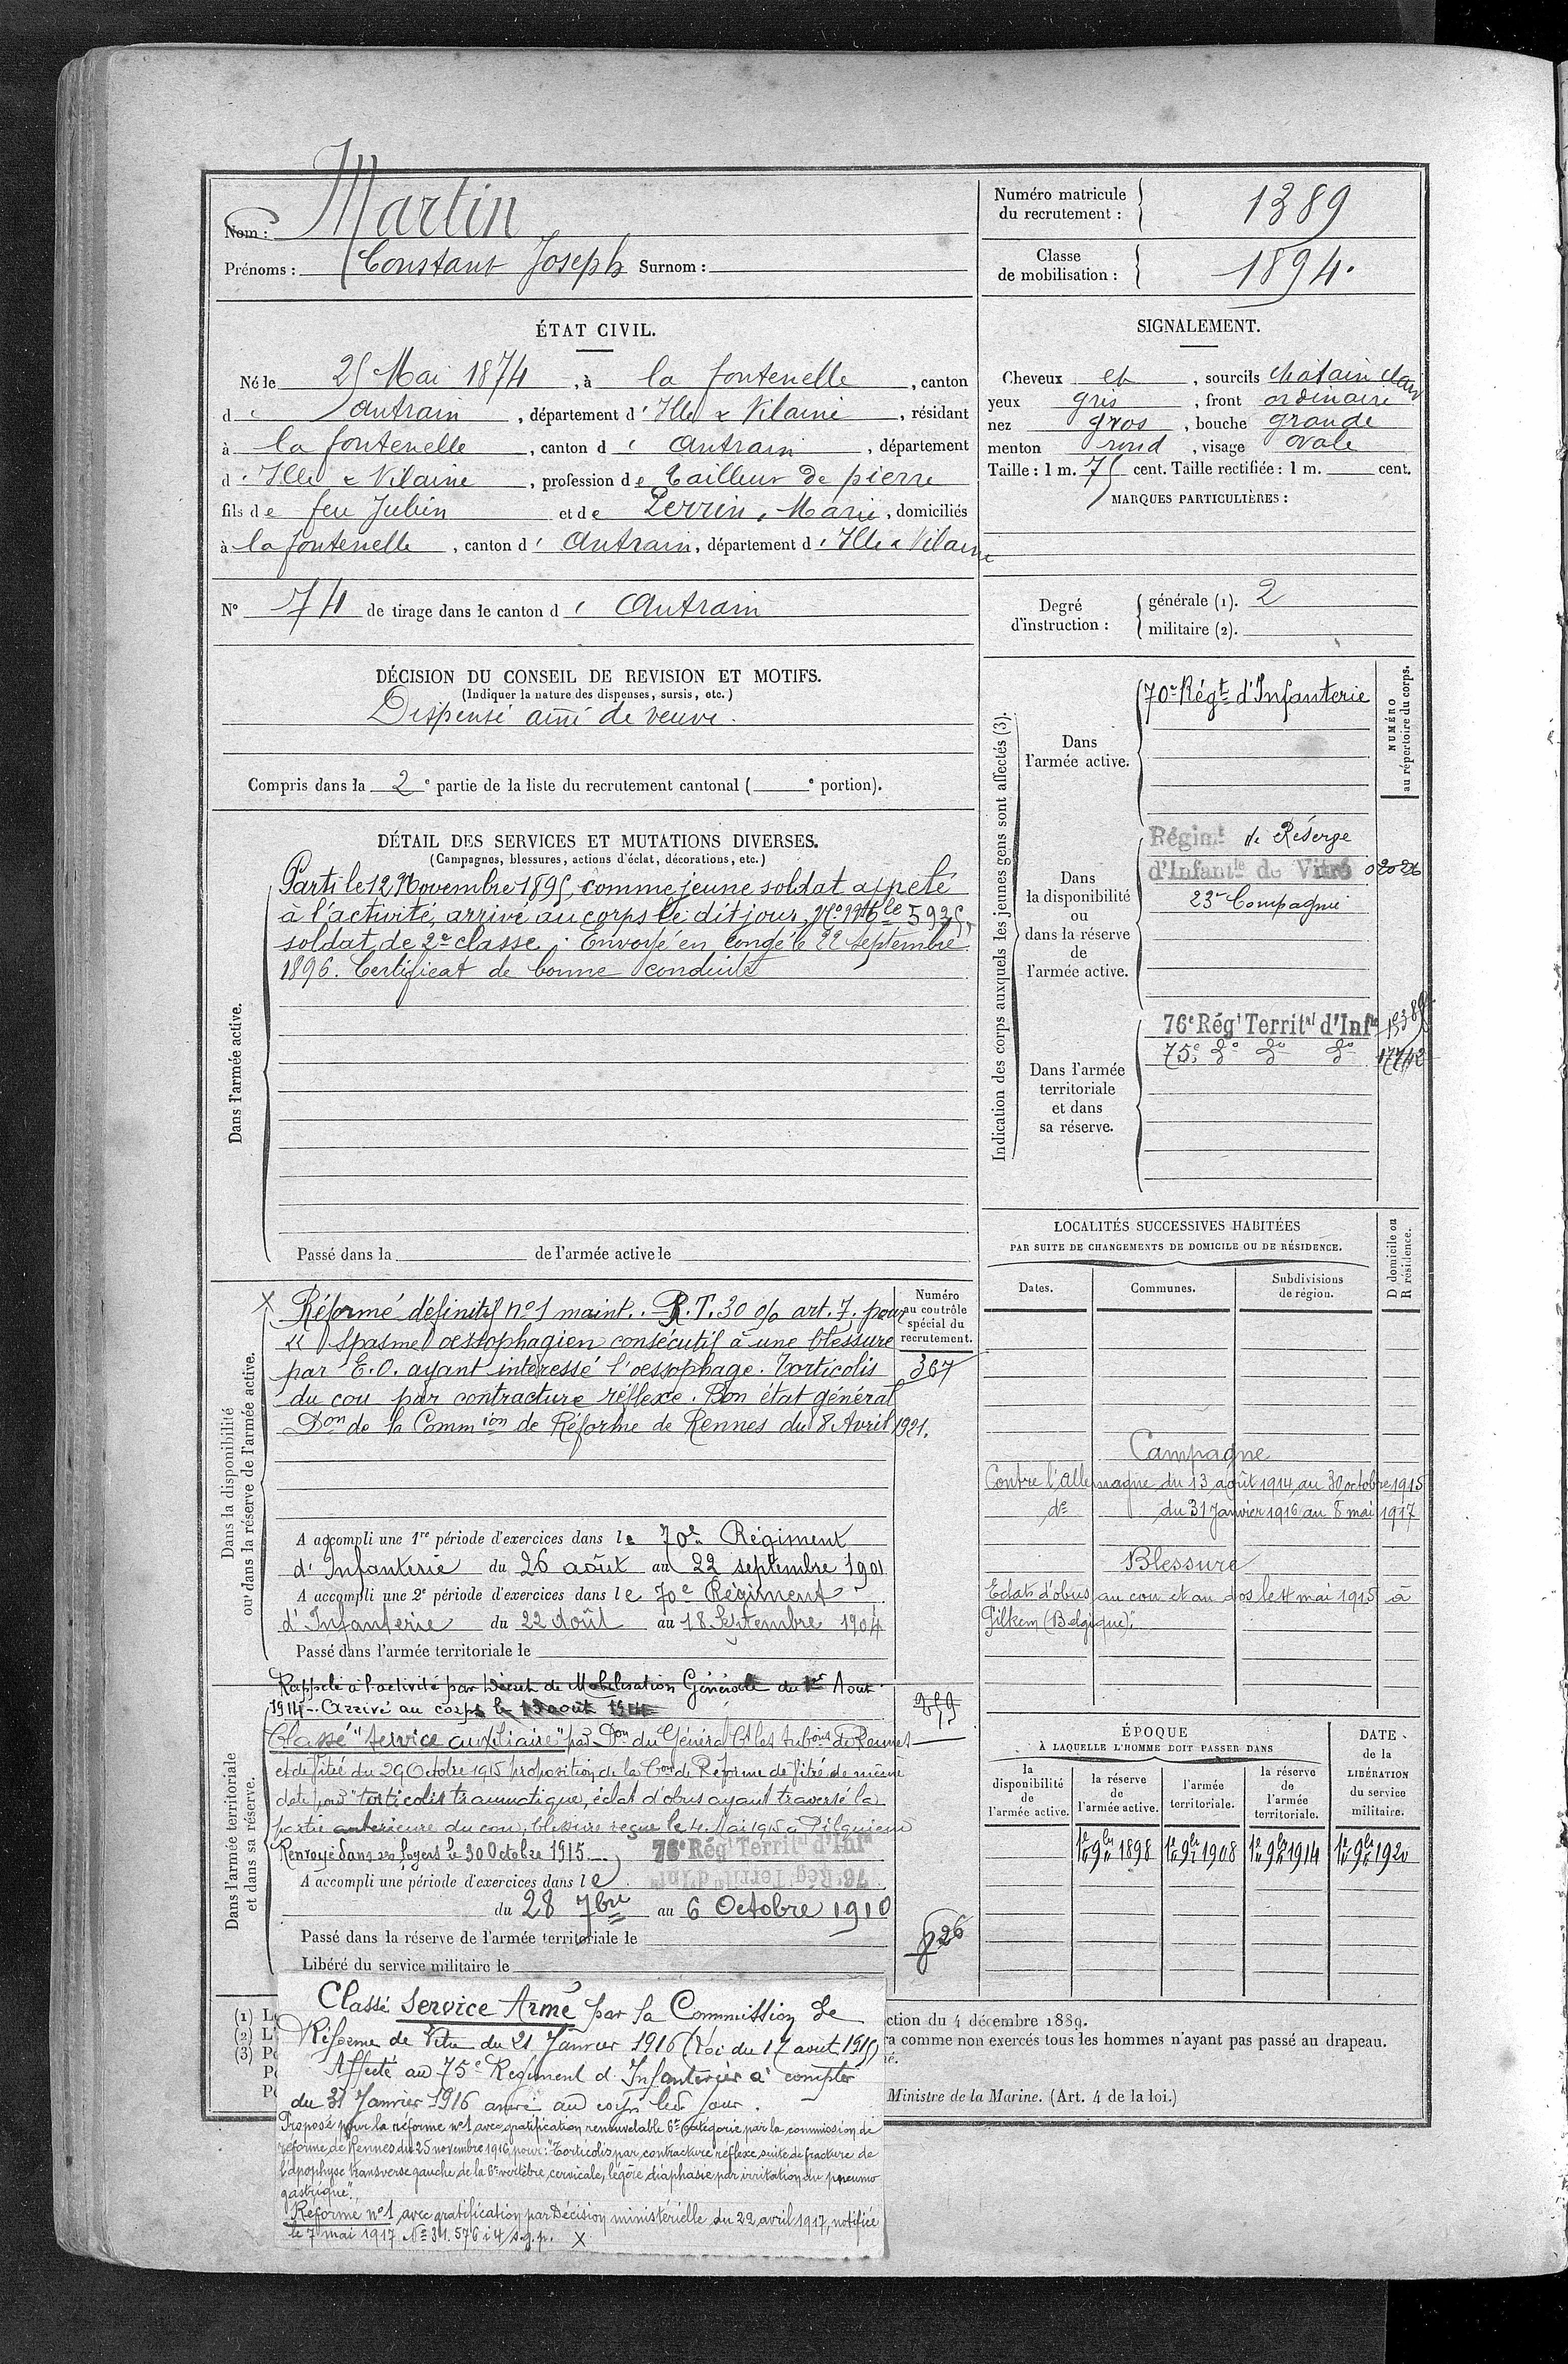 Nom : Martin
Prénoms : Constant Joseph Surnom :
Numéro matricule du recrutement : 1389
Classe de mobilisation : 1894.
ÉTAT CIVIL.
Né le 25 Mai 1874, à la fontenelle, canton
d' Antrain, département d' Ille & Vilaine, résidant
à la fontenelle, canton d' Antrain, département
d' Ille & Vilaine, profession de tailleur de pierre
fils de feu Julien et de Perrin, Marie, domiciliés
à la fontenelle, canton d' Antrain, département d' Ille & Vilaine
N° 74 de tirage dans le canton d' Antrain
SIGNALEMENT.
Cheveux et, sourcils chatain clair
yeux gris, front ordinaire
nez gros, bouche grande
menton rond, visage ovale
Taille : 1 m. 75 cent. Taille rectifiée : 1 m. cent.
MARQUES PARTICULIÈRES :
Degré d'instruction : générale (1). 2
militaire (2).
DÉCISION DU CONSEIL DE REVISION ET MOTIFS.
(Indiquer la nature des dispenses, sursis, etc.)
Dispensé aîné de veuve.
Compris dans la 2e partie de la liste du recrutement cantonal ( e portion).
DÉTAIL DES SERVICES ET MUTATIONS DIVERSES.
(Campagnes, blessures, actions d'éclat, décorations, etc.)
Dans l'armée active.
Parti le 12 Novembre 1895, comme jeune soldat appelé
à l'activité, arrivé au corps le dit jour, No Mle 5935,
soldat de 2e classe. Envoyé en congé le 22 septembre
1896. Certificat de bonne conduite
Passé dans la de l'armée active le
Indication des corps auxquels les jeunes gens sont affectés (3).
NUMÉRO au répertoire du corps.
Dans l'armée active.
70e Régt d'Infanterie
Dans la disponibilité ou dans la réserve de l'armée active.
Régimt de Réserve
d'Infantie de Vitré 02026
23e Compagnie
Dans l'armée territoriale et dans sa réserve.
76e Régt Territal d'Infie
75e do do do 17742
LOCALITÉS SUCCESSIVES HABITÉES
PAR SUITE DE CHANGEMENTS DE DOMICILE OU DE RÉSIDENCE.
Dates. Communes. Subdivisions de région. D domicile ou R résidence.
Campagne
Contre l'Allemagne du 13 août 1914 au 30 octobre 1915
do du 31 Janvier 1916 au 8 mai 1917
Blessure
Eclats d'obus au cou et au dos le 4 mai 1915 à
Pilkem (Belgique).
Dans la disponibilité ou dans la réserve de l'armée active.
Numéro au contrôle spécial du recrutement.
367
X Réformé définitif no 1 maint. R.T. 30 % art. 7, pour
"Spasme oessophagien consécutif à une blessure
par E.O. ayant intéressé l'oessophage. Torticolis
du cou par contracture réflexe. Bon état général
Don de la Commion de Réforme de Rennes du 8 Avril 1921.
A accompli une 1re période d'exercices dans le 70e Régiment
d'Infanterie du 26 août au 22 septembre 1901
A accompli une 2e période d'exercices dans le 70e Régiment
d'Infanterie du 22 Août au 18 Septembre 1904
Passé dans l'armée territoriale le
Dans l'armée territoriale et dans sa réserve.
Rappelé à l'activité par Décret de Mobilisation Générale du 1er Aout
1914. Arrivé au corps le 13 août 1914
Classé "service auxiliaire" par Don du Général Ct les Subons de Rennes
et de Vitré du 29 Octobre 1915 proposition de la Con de Réforme de Vitré de même
date pour "torticolis traumatique, éclat d'obus ayant traversé la
partie antérieure du cou, blessure reçue le 4 Mai 1915 à
Renvoyé dans ses foyers le 30 Octobre 1915. 76e Régt Territal d'Infie
A accompli une période d'exercices dans le
du 28 7bre au 6 Octobre 1910
Passé dans la réserve de l'armée territoriale le
Libéré du service militaire le
526
ÉPOQUE
À LAQUELLE L'HOMME DOIT PASSER DANS
la disponibilité de l'armée active.
la réserve de l'armée active.
l'armée territoriale.
la réserve de l'armée territoriale.
DATE de la LIBÉRATION du service militaire.
1er 9bre 1898 1er 9bre 1908 1er 9bre 1914 1er 9bre 1920
ction du 4 décembre 1889.
ra comme non exercés tous les hommes n'ayant pas passé au drapeau.
Ministre de la Marine. (Art. 4 de la loi.)
Classé Service Armé par la Commission de
Réforme de Vitré du 21 Janvier 1916 (Loi du 17 aout 1915)
Affecté au 75e Regiment d'Infanterie à compter
du 31 Janvier 1916 arrivé au corps led. jour.
Proposé pour la réforme no 1 avec gratification renouvelable 6e catégorie par la commission de
réforme de Rennes du 25 novembre 1916 pour : "Torticolis par contracture réflexe, suite de fracture de
l'apophyse transverse gauche de la 6e vertèbre cervicale, légère diaphasie par irritation du pneumo
gastrique".
Réformé no 1 avec gratification par Décision ministérielle du 22 avril 1917, notifiée
le 7 mai 1917. No 31.576 i 4/s.g.p. X